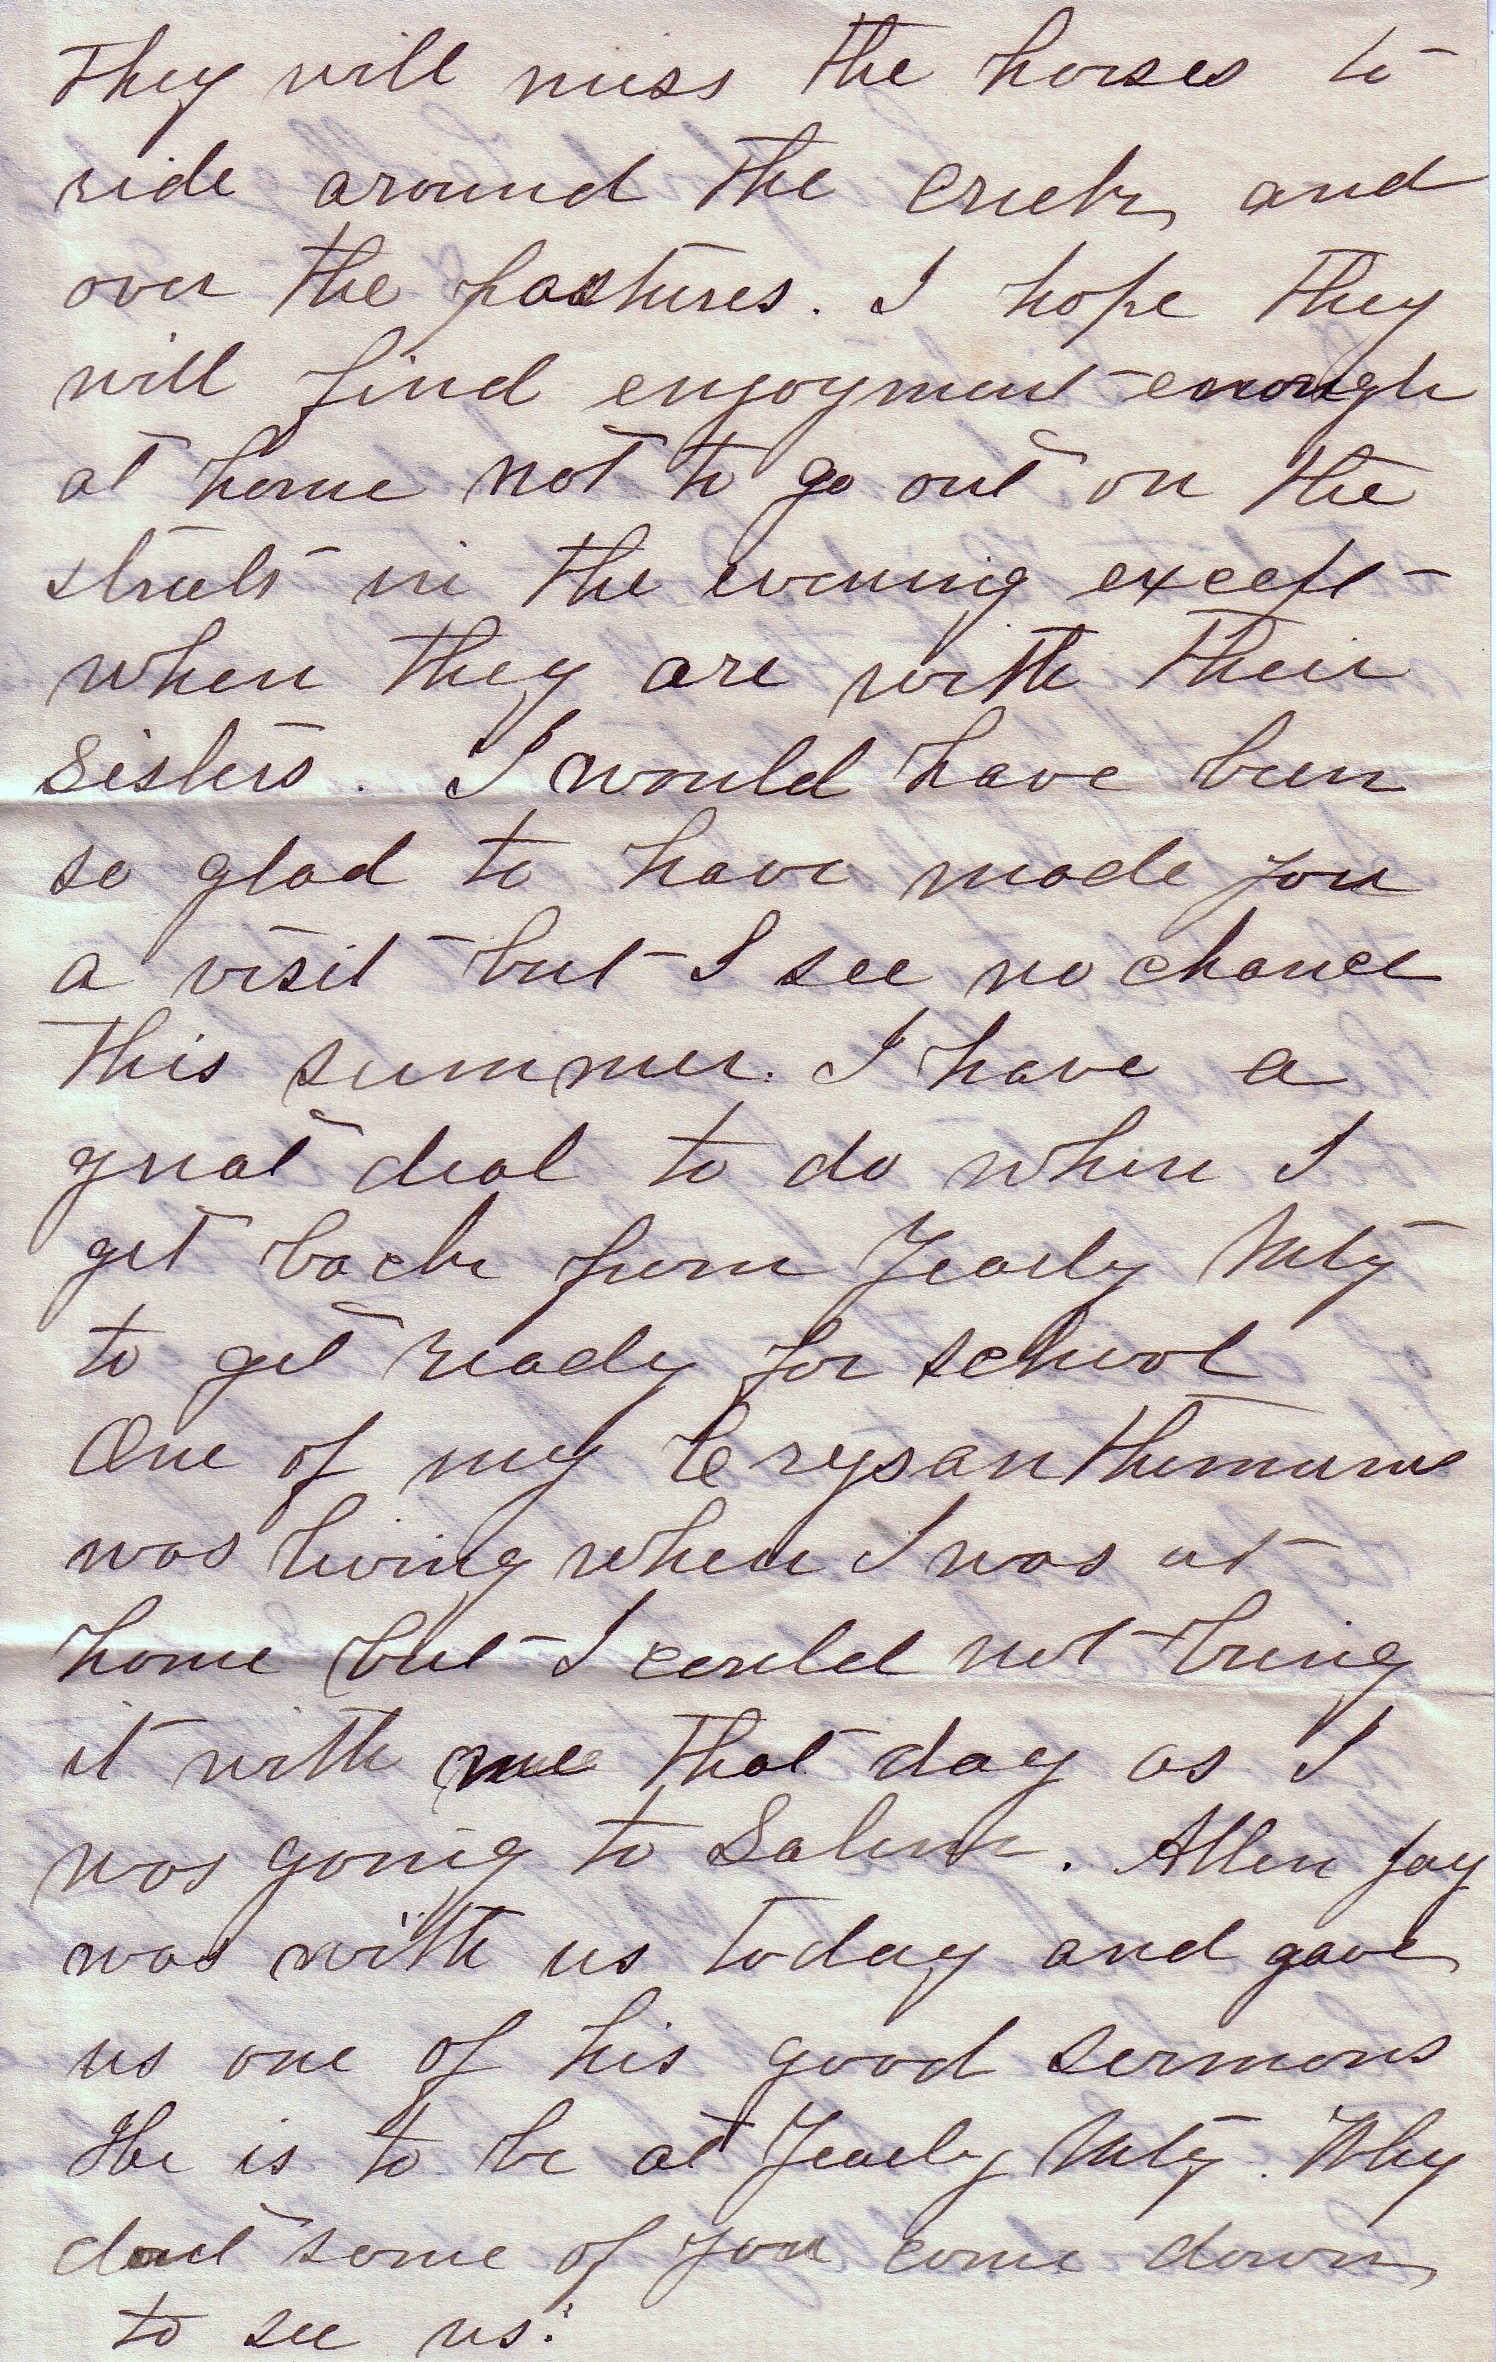 They will miss the horses to
ride around the creek, and
over the pastures. I hope they
will find enjoyment enough
at home not to go out on the
streets in the evening except
when they are with their
Sisters. I would have been
so glad to have made you
a visit but I see no chance
this summer. I have a
great deal to do when I
get back from Yearly Mtg
to get ready for school
One of my Crysanthemums
was living when I was at
home but I could not bring
it with me that day as I
was going to Salem. Allen Jay
was with us today and gave
us one of his good sermons
He is to be at Yearly Mtg. Why
dont some of you come down
to see us?